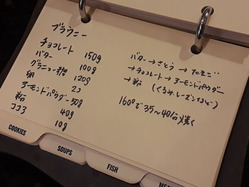 ブラウニー
チョコレート 150g
バター 100g
グラニュー糖 120g
卵 2コ
アーモンドパウダー 50g
粉 40g
ココア 10g
バター→さとう→たまご
→チョコレート→アーモンドパウダー
→粉
160°で35〜40分焼く
COOKIES
SOUPS
FISH